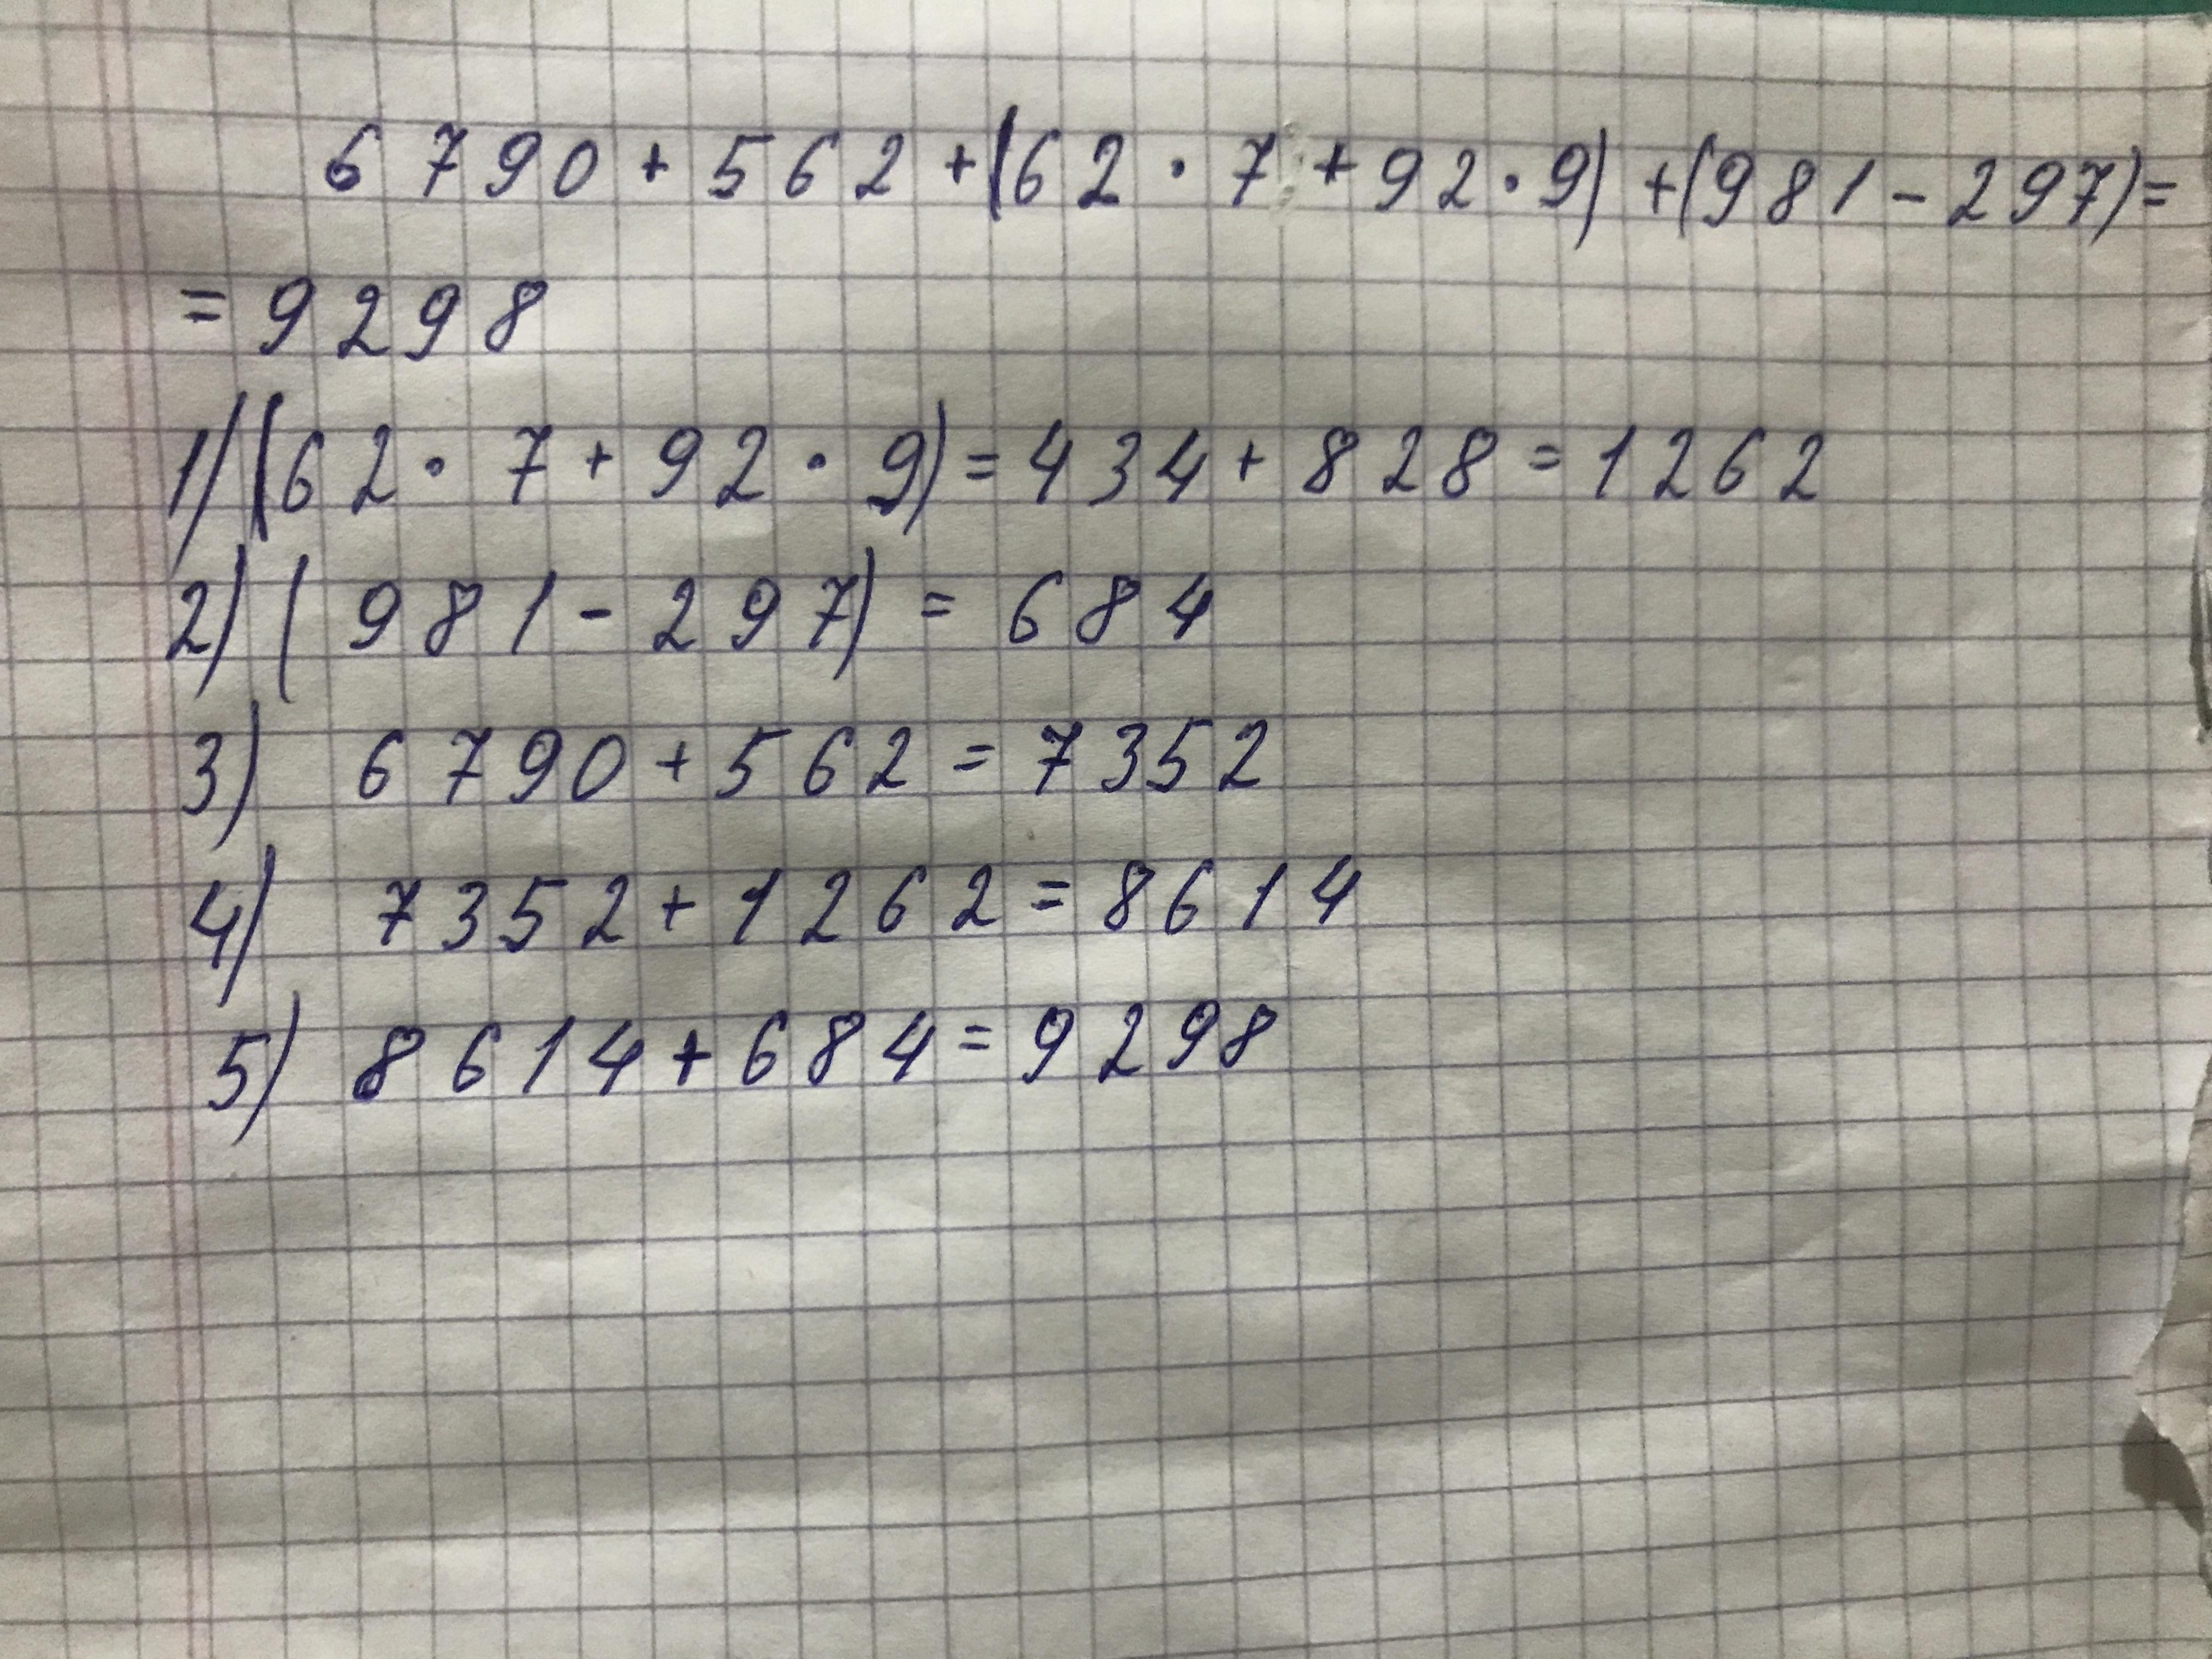 6790+562+(62·7+92·9)+(981-297)=
=9298
1)(62·7+92·9)=434+828=1262
2)(981-297)=684
3) 6790+562=7352
4) 7352+1262=8614
5) 8614+684=9298